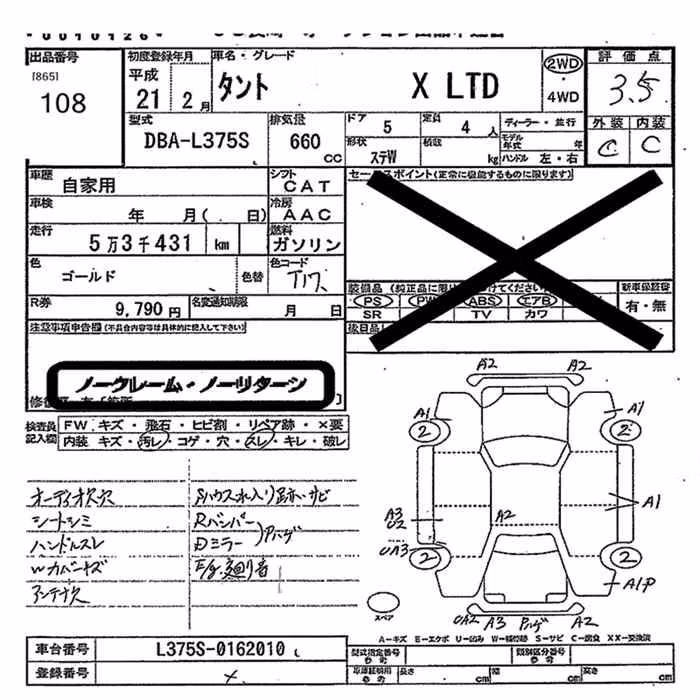 出品番号 初度登録年月 車名・グレード 評価点
[865] 平成 タント X LTD 2WD 3.5
108 21 2月 ・ 4WD
外装 内装
型式 排気量 ドア 5 定員 4人 ディーラー・並行 C C
DBA-L375S 660 CC 形状 ステW 積載 kg モデル年式 年
ハンドル 左・右
車歴 自家用 シフト CAT セールスポイント(正常に機能するものに限ります)
車検 年 月( 日) 冷房 AAC
走行 5万3千431 km 燃料 ガソリン
色 ゴールド 色替 色コード T17
装備品 新車保証書
PS PW ABS エアB 有・無
SR TV カワ
R券 9,790円 名変通知期限 月 日
後日品
注意事項申告欄(不具合内容等は具体的に記入して下さい)
ノークレーム・ノーリターン
検査員記入欄 FW キズ・飛石・ヒビ割・リペア跡・×要
内装 キズ・汚レ・コゲ・穴・スレ・キレ・破レ
A2 A2
A1 A1
2 2
オーディオ欠穴
シートシミ Rバンパー
ハンドルスレ Dミラー
Wカバーキズ
アンテナ欠
A3 A2 A1
U2
UA3
2 2
A1P
スペア UA2 A3 Pハゲ
A-キズ E-エクボ U-凹み W-補修跡 S-サビ C-腐食 XX-交換済
車台番号 L375S-0162010
型式指定番号 類別区分番号
参考 参考
登録番号
長さ cm 幅 cm 高さ cm